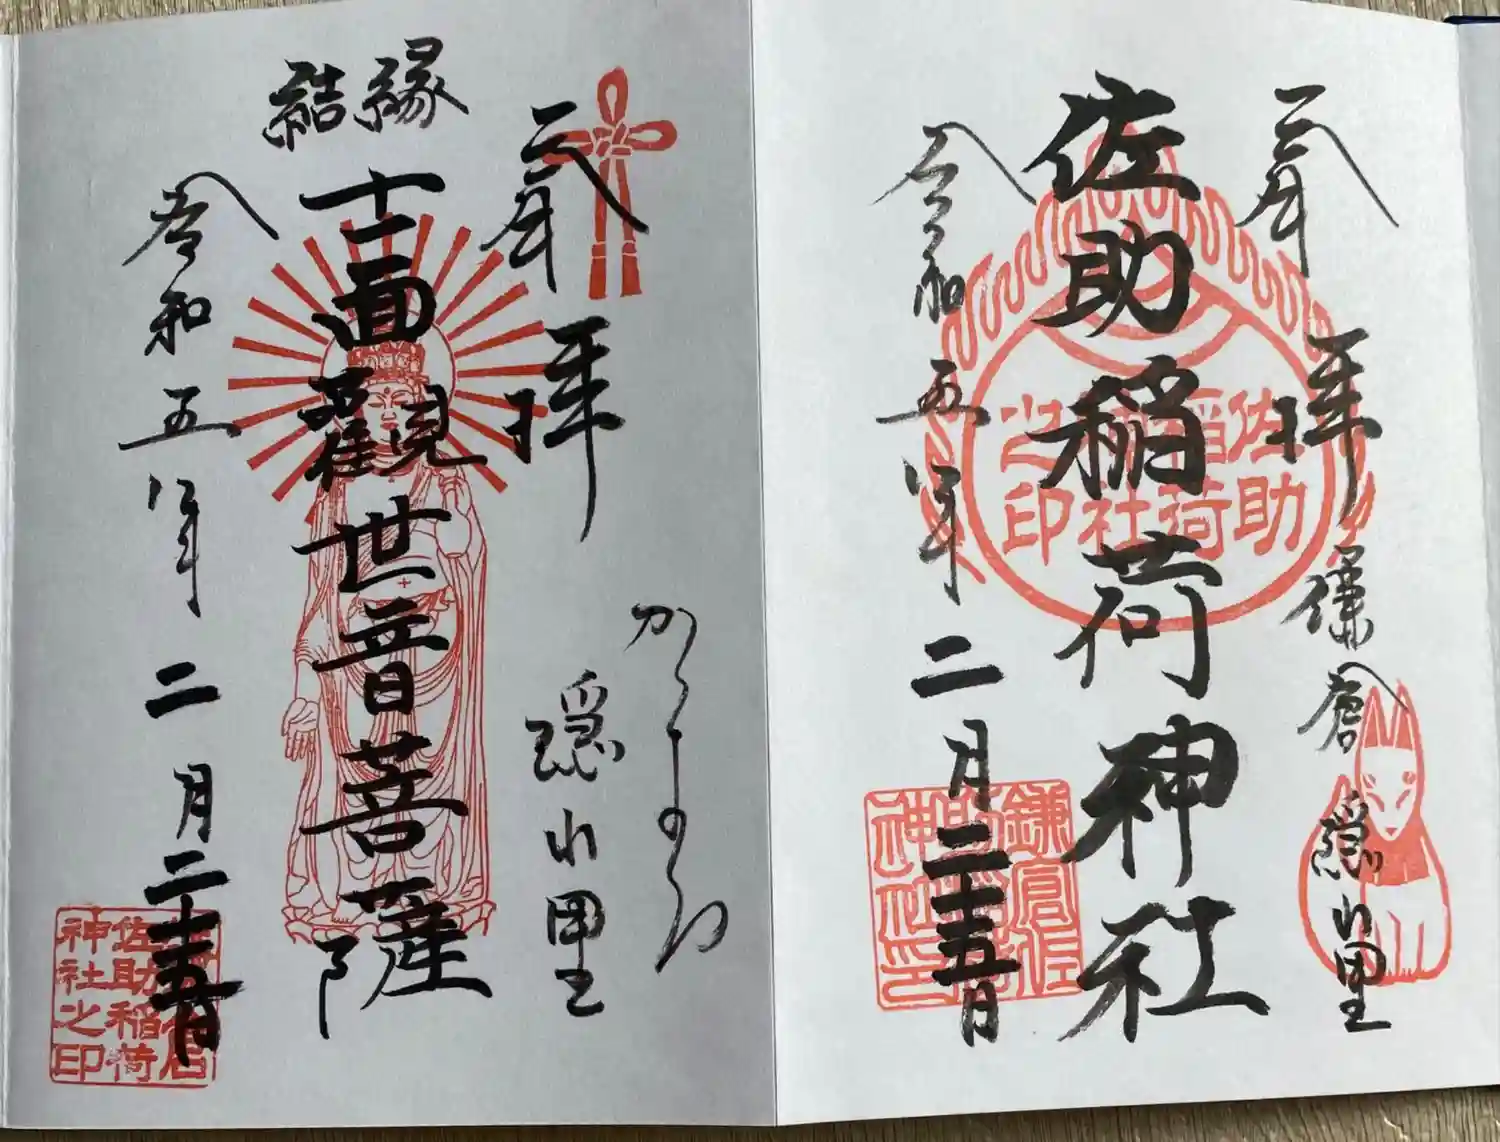 奉拝
鎌倉 隠れ里
佐助稲荷神社
佐助稲荷神社之印
令和五年二月二十五日
鎌倉佐助稲荷神社之印
奉拝
隠れ里
縁結
十一面觀世音菩薩
令和五年二月二十五日
鎌倉佐助稲荷神社之印